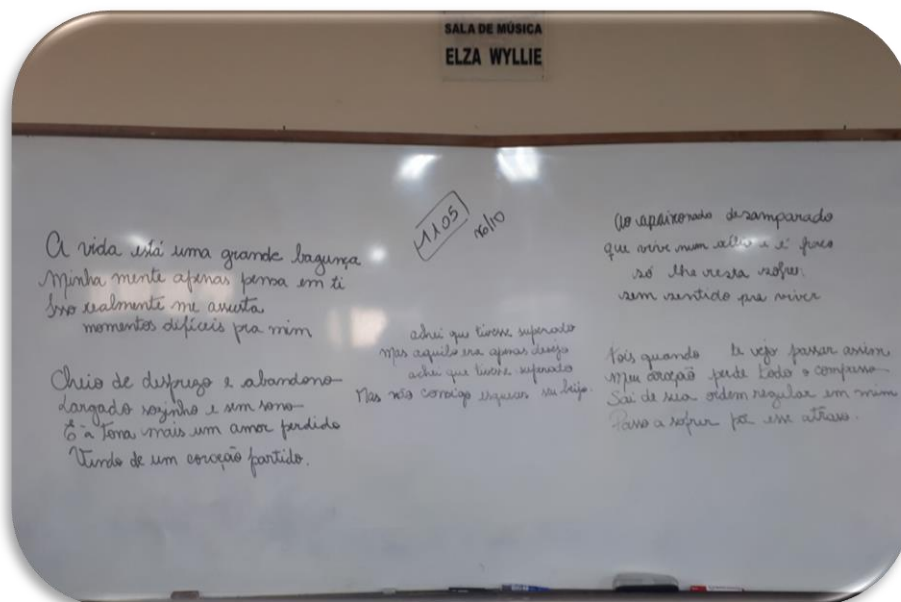 SALA DE MÚSICA
ELZA WYLLIE
A vida está uma grande bagunça
Minha mente apenas pensa em ti
Isso realmente me assusta
momentos difíceis pra mim
Cheio de desprezo e abandono
Largado sozinho e sem sono
É à Tona mais um amor perdido
Vindo de um coração partido.
1105
achei que tivesse superado
Mas aquilo era apenas desejo
achei que tivesse superado
Mas não consigo esquecer seu beijo.
Ao apaixonado desamparado
que vive num e é fraco
só lhe resta sofrer.
sem sentido pra viver
Pois quando te vejo passar assim
Meu coração perde todo o compasso
Sai de sua ordem regular em mim
Passo a sofrer por esse atraso.